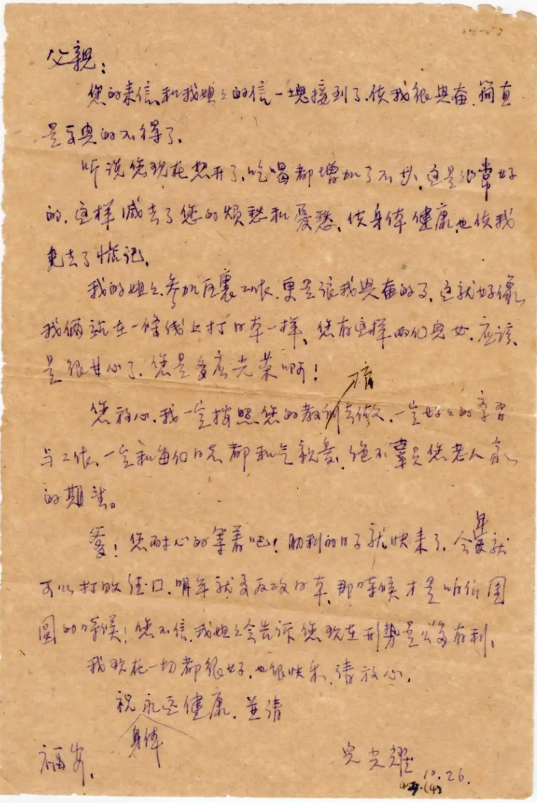 父亲：
您的来信和我姐々的信一块接到了，使我很兴奋，简直
是高兴的不得了。
听说您现在想开了，吃喝都增加了不少，这是很常好
的，这样减去了您的烦愁和忧愁，使身体健康，也使我
免去了惦记。
我的姐々参加后襄工作，更是让我兴奋的了，这就好像
我俩站在一条线上打日本一样，您有这样两们儿女，应该
是很甘心了，您是多么光荣啊！
您放心，我一定按照您的教训去做，一定好々的学习
与工作，一定和每们同志都和气亲爱，绝不辜负您老人家
的期望。
爹！您耐心的等着吧！胜利的日子就快来了，今年就
可以打败德口，明年就要反攻日本，那时候才是咱们团
圆的时候！您不信，我姐々会告诉您现在形势是多么有利。
我现在一切都很好，也很快乐，请放心。
祝永远健康，并请
身体
福安，
儿光耀
10.26.